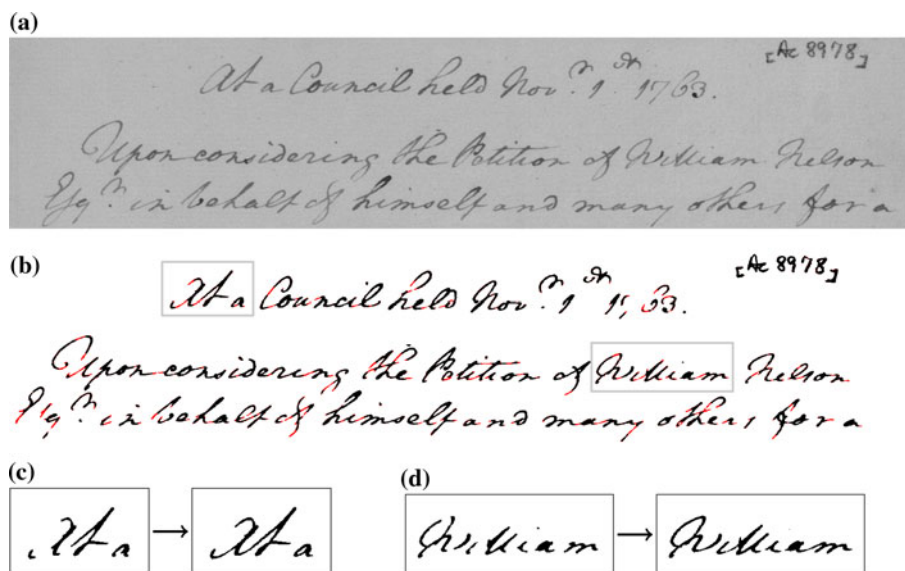 (a)
[Ac 8978]
At a Council held Novr. 1st 1763.
Upon considering the Petition of William Nelson
Esqr. in behalf of himself and many others for a
(b)
[Ac 8978]
At a Council held Novr. 1st 1763.
Upon considering the Petition of William Nelson
Esqr. in behalf of himself and many others for a
(c)
(d)
At a → At a
William → William